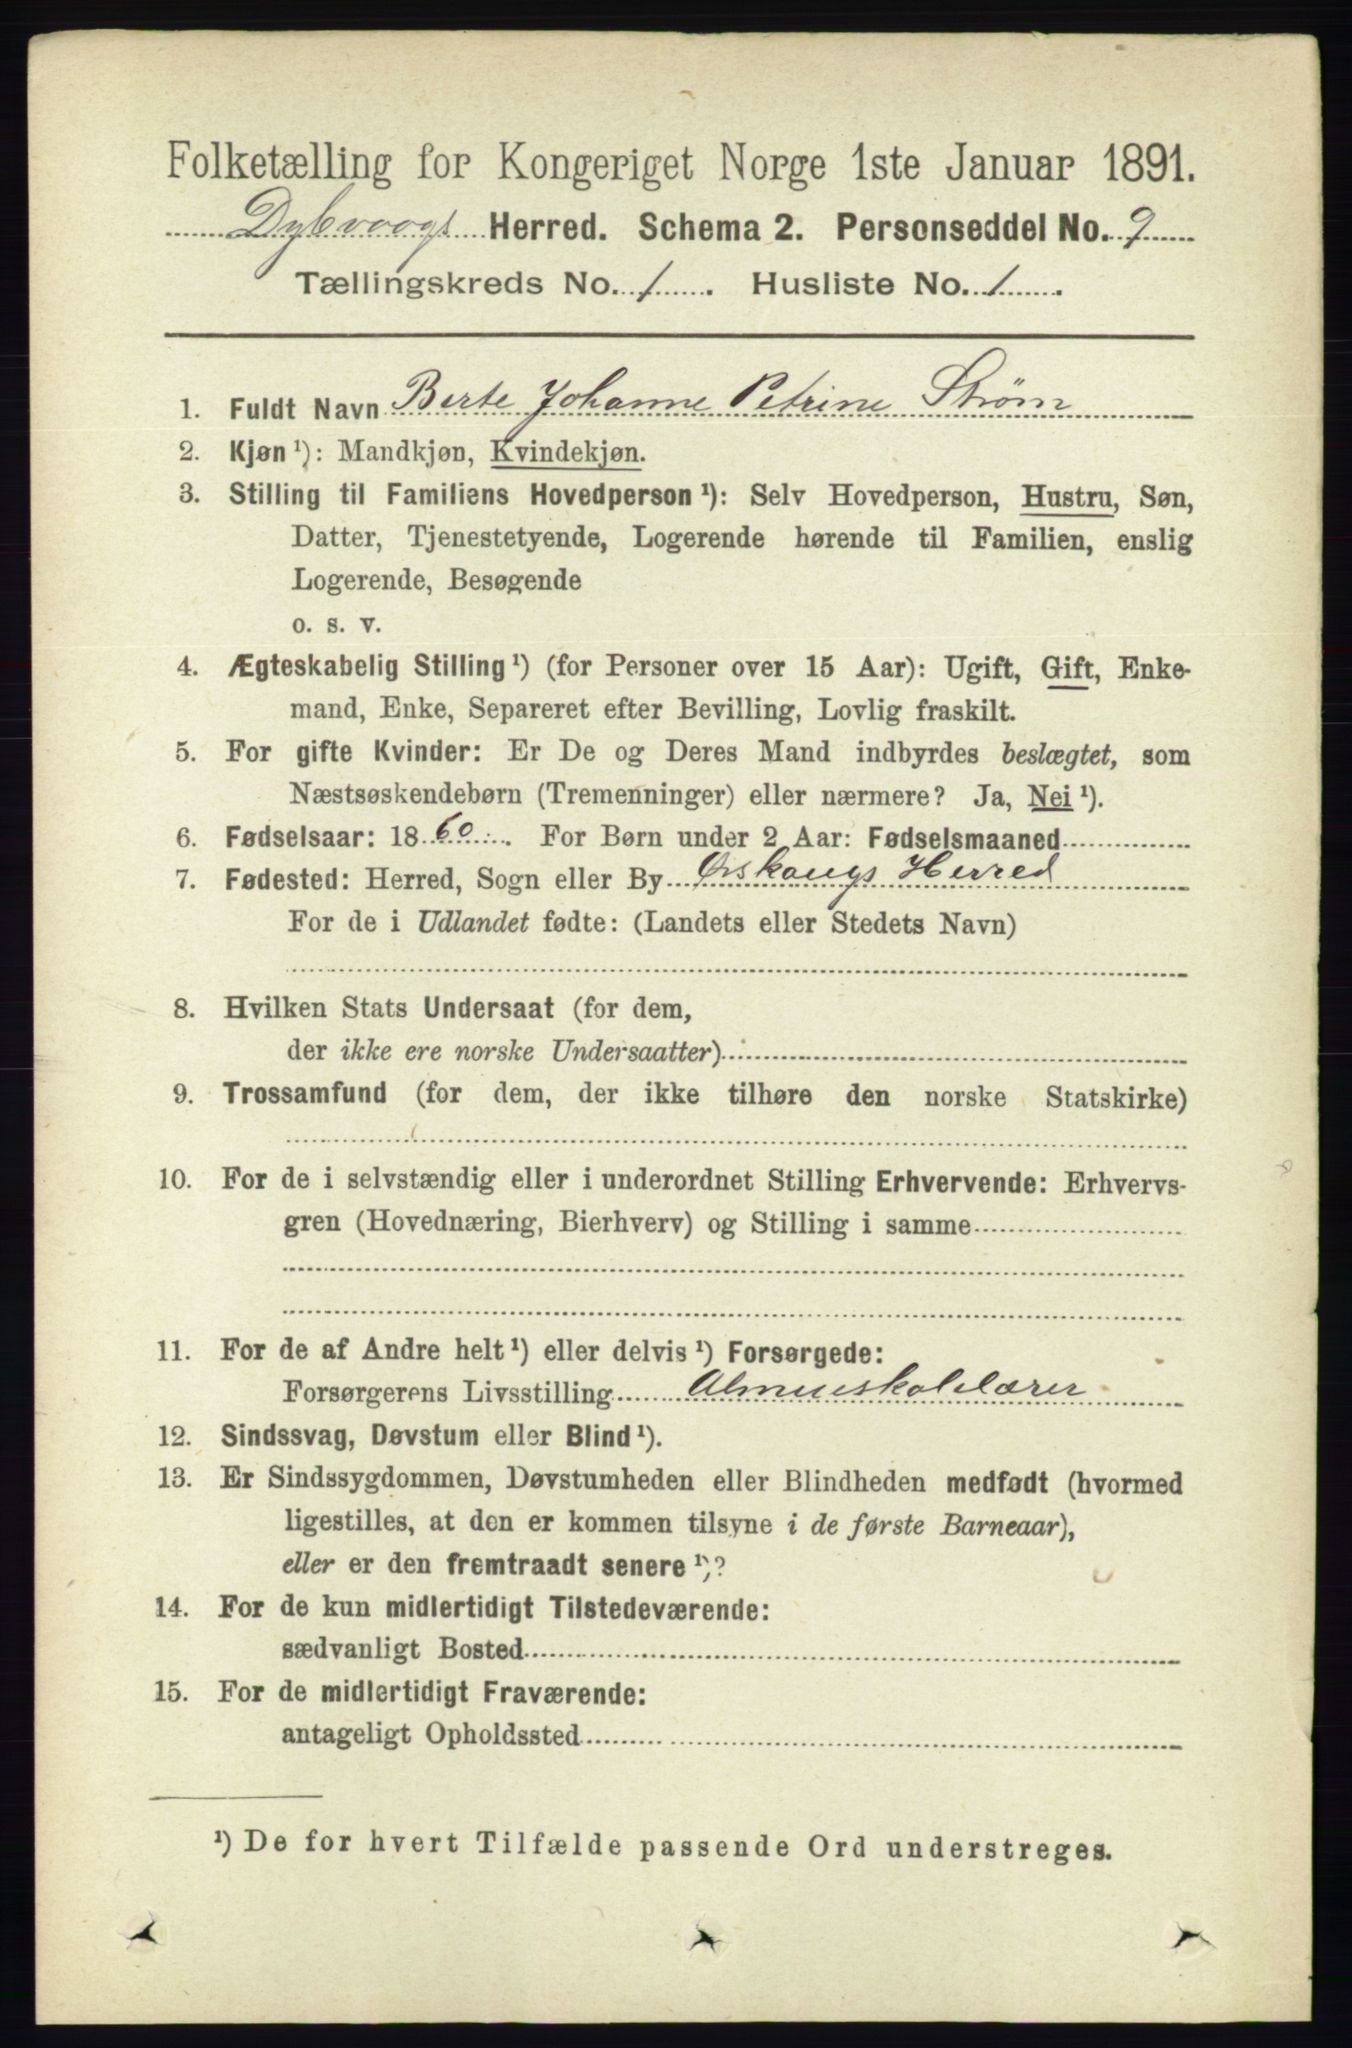 Folketælling for Kongeriget Norge 1ste Januar 1891.
Dybvaags Herred. Schema 2. Personseddel No. 9
Tællingskreds No. 1. Husliste No. 1.
1. Fuldt Navn Berte Johanne Petrine Strøm
2. Kjøn ¹): Mandkjøn, Kvindekjøn.
3. Stilling til Familiens Hovedperson ¹): Selv Hovedperson, Hustru, Søn,
Datter, Tjenestetyende, Logerende hørende til Familien, enslig
Logerende, Besøgende
o. s. v.
4. Ægteskabelig Stilling ¹) (for Personer over 15 Aar): Ugift, Gift, Enke-
mand, Enke, Separeret efter Bevilling, Lovlig fraskilt.
5. For gifte Kvinder: Er De og Deres Mand indbyrdes beslægtet, som
Næstsøskendebørn (Tremenninger) eller nærmere? Ja, Nei ¹).
6. Fødselsaar: 1860. For Børn under 2 Aar: Fødselsmaaned
7. Fødested: Herred, Sogn eller By Ørskougs Herred
For de i Udlandet fødte: (Landets eller Stedets Navn)
8. Hvilken Stats Undersaat (for dem,
der ikke ere norske Undersaatter)
9. Trossamfund (for dem, der ikke tilhøre den norske Statskirke)
10. For de i selvstændig eller i underordnet Stilling Erhvervende: Erhvervs-
gren (Hovednæring, Bierhverv) og Stilling i samme
11. For de af Andre helt ¹) eller delvis ¹) Forsørgede:
Forsørgerens Livsstilling Almueskolelærer
12. Sindssvag, Døvstum eller Blind ¹).
13. Er Sindssygdommen, Døvstumheden eller Blindheden medfødt (hvormed
ligestilles, at den er kommen tilsyne i de første Barneaar),
eller er den fremtraadt senere ¹)?
14. For de kun midlertidigt Tilstedeværende:
sædvanligt Bosted
15. For de midlertidigt Fraværende:
antageligt Opholdssted
¹) De for hvert Tilfælde passende Ord understreges.